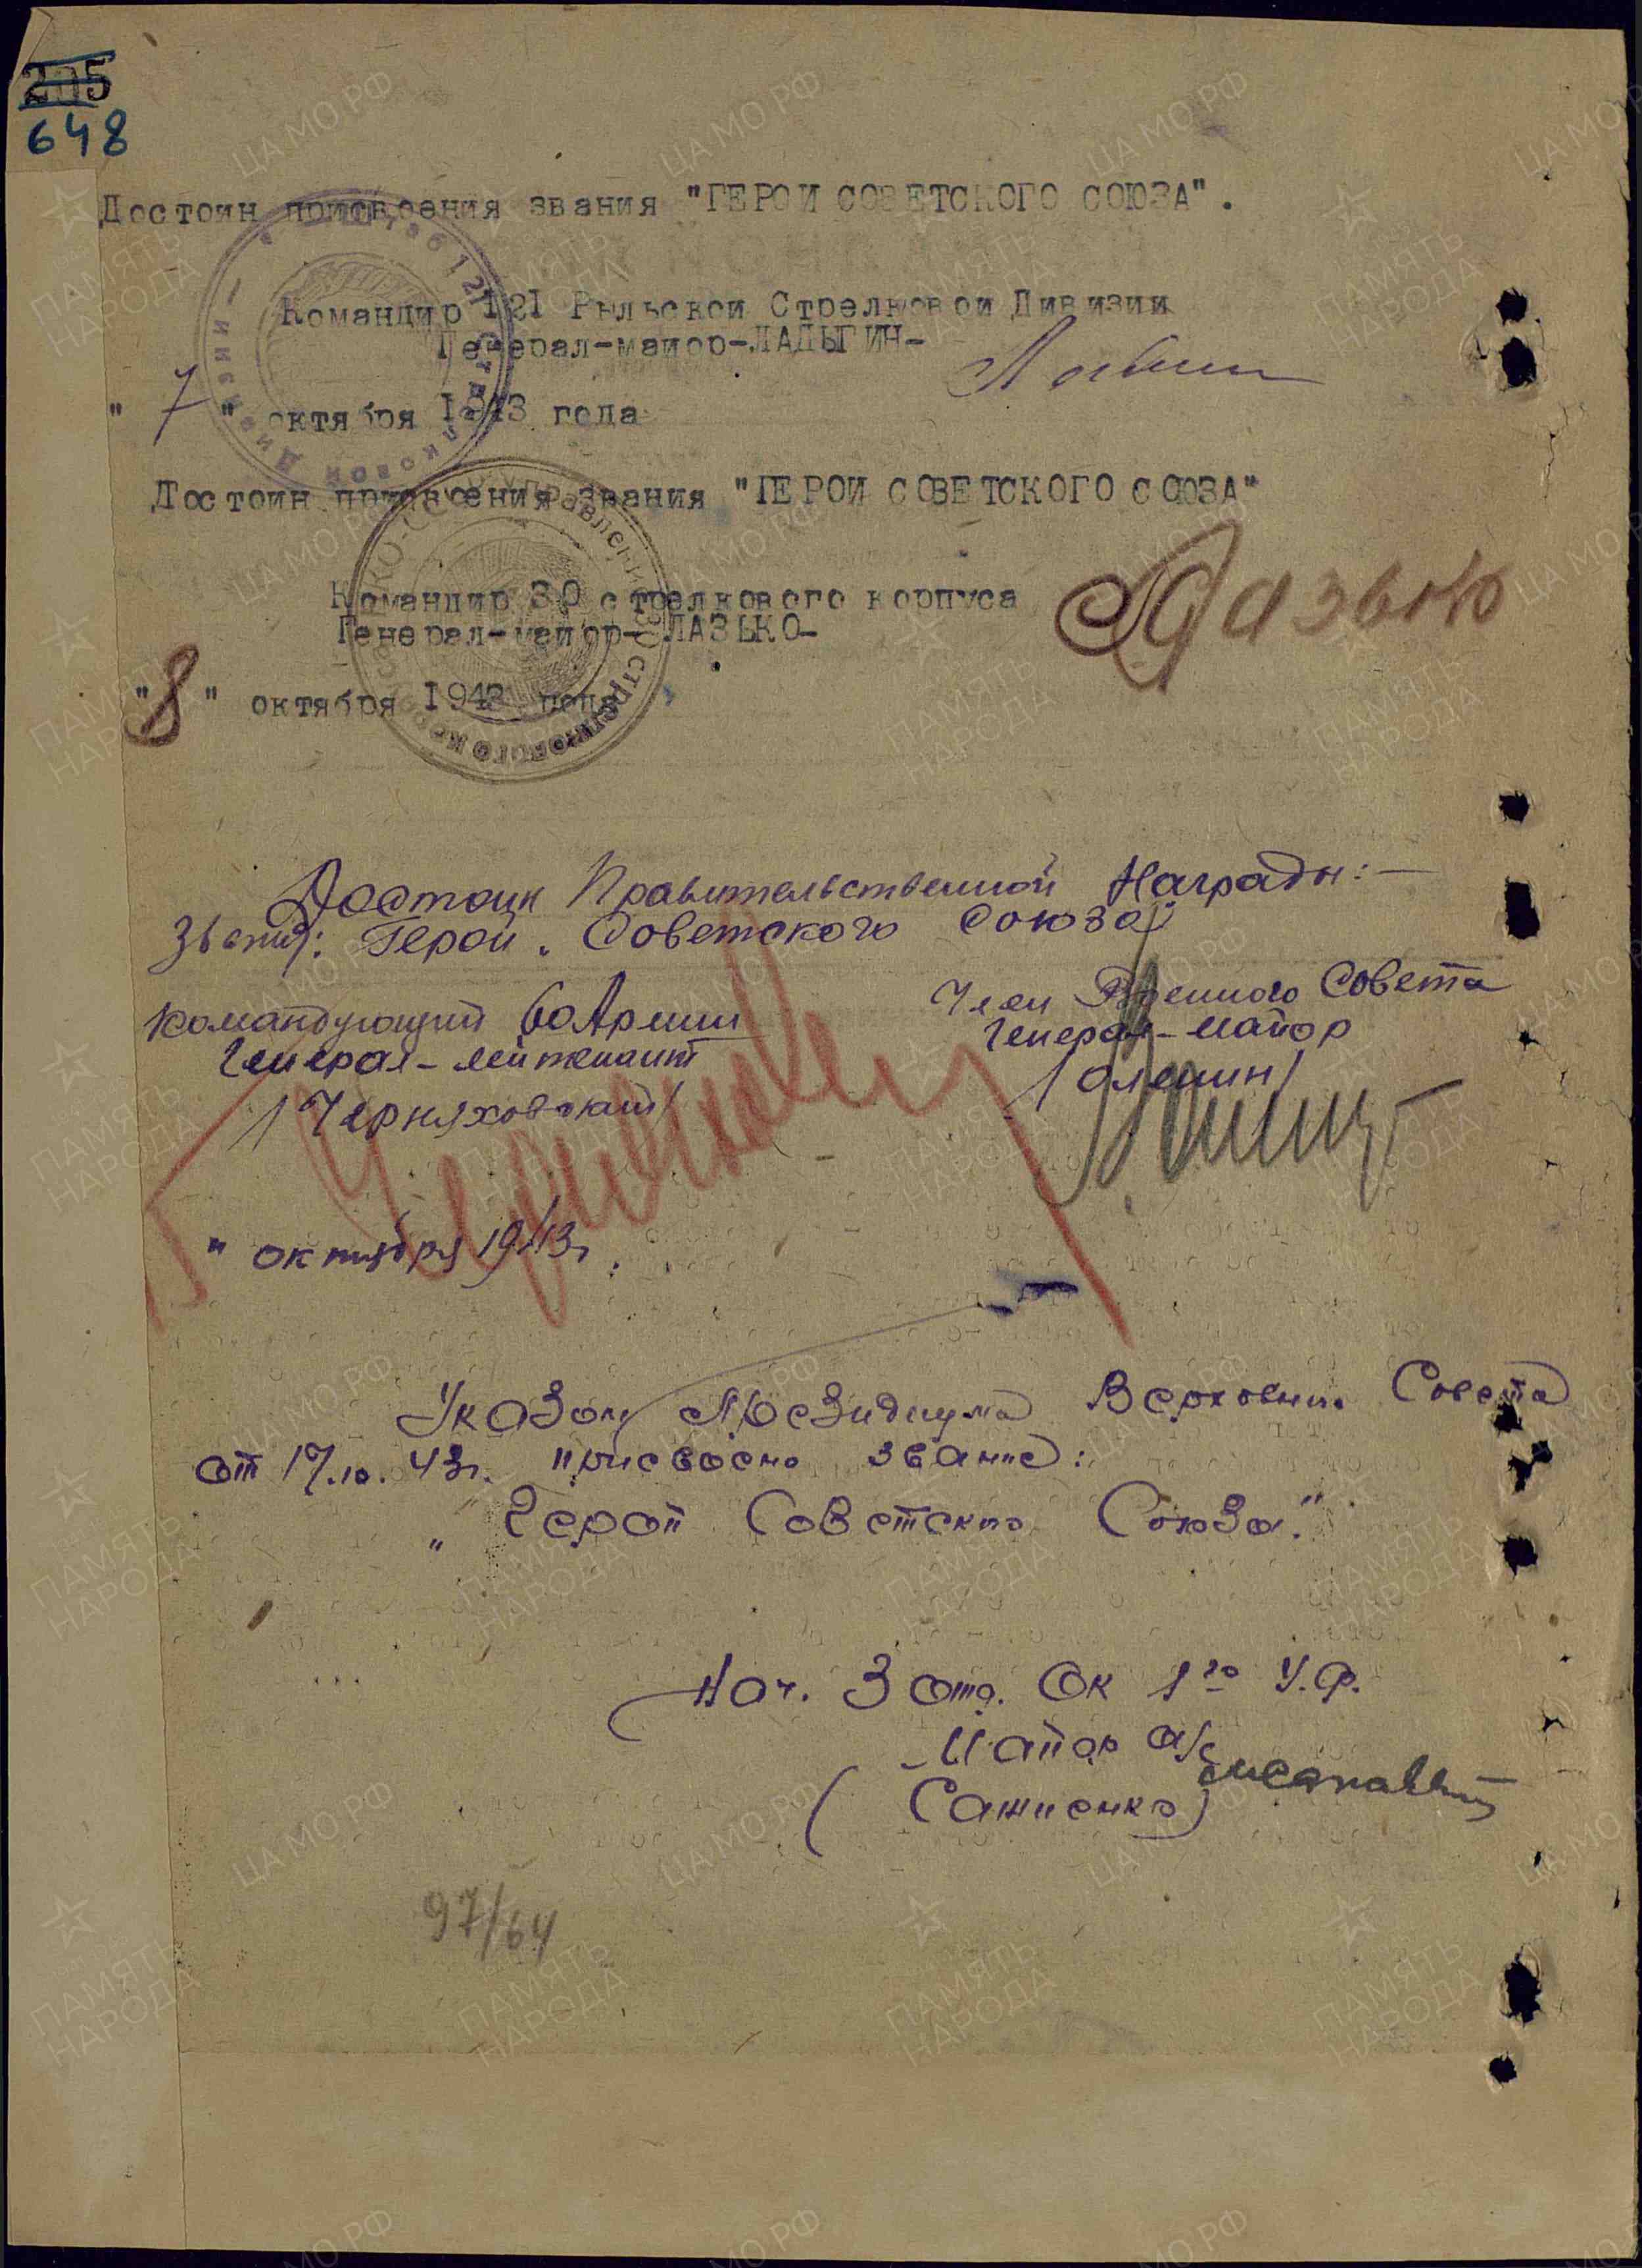 205
648
Достоин присвоения звания "ГЕРОИ СОВЕТСКОГО СОЮЗА".
Командир 121 Рыльской Стрелковой Дивизии
Генерал-майор-ЛАДЫГИН-
"7" октября 1943 года
Достоин присвоения звания "ГЕРОИ СОВЕТСКОГО СОЮЗА"
Командир 30 стрелкового корпуса
Генерал-майор-ЛАЗЬКО-
Лазько
"8" октября 1943 года
Достоин Правительственной Награды:—
Звания: Герой. Советского Союза
Командующий 60 Армии
Генерал-лейтенант
/Черняховский/
Член Военного Совета
Генерал-майор
/Оленин/
" октября 1943г.
Указом Президиума Верховн. Совета
от 17.10.43г. присвоено звание:
„Герой Советского Союза."
Нач. 3 отд. ОК 1го У.Ф.
Майор а/с
(Сашиенко)
97/64
ЦА МО РФ
ПАМЯТЬ
НАРОДА